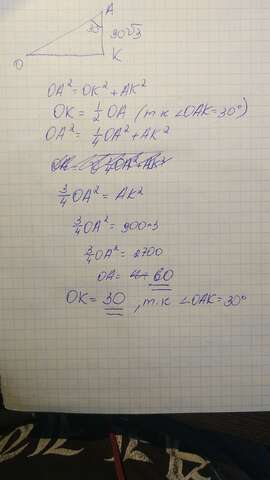 A
30°
30√3
O
K
OA² = OK² + AK²
OK = ½ OA (т.к ∠OAK = 30°)
OA² = ¼ OA² + AK²
¾ OA² = AK²
¾ OA² = 900·3
¾ OA² = 2700
OA = 60
OK = 30, т.к ∠OAK = 30°